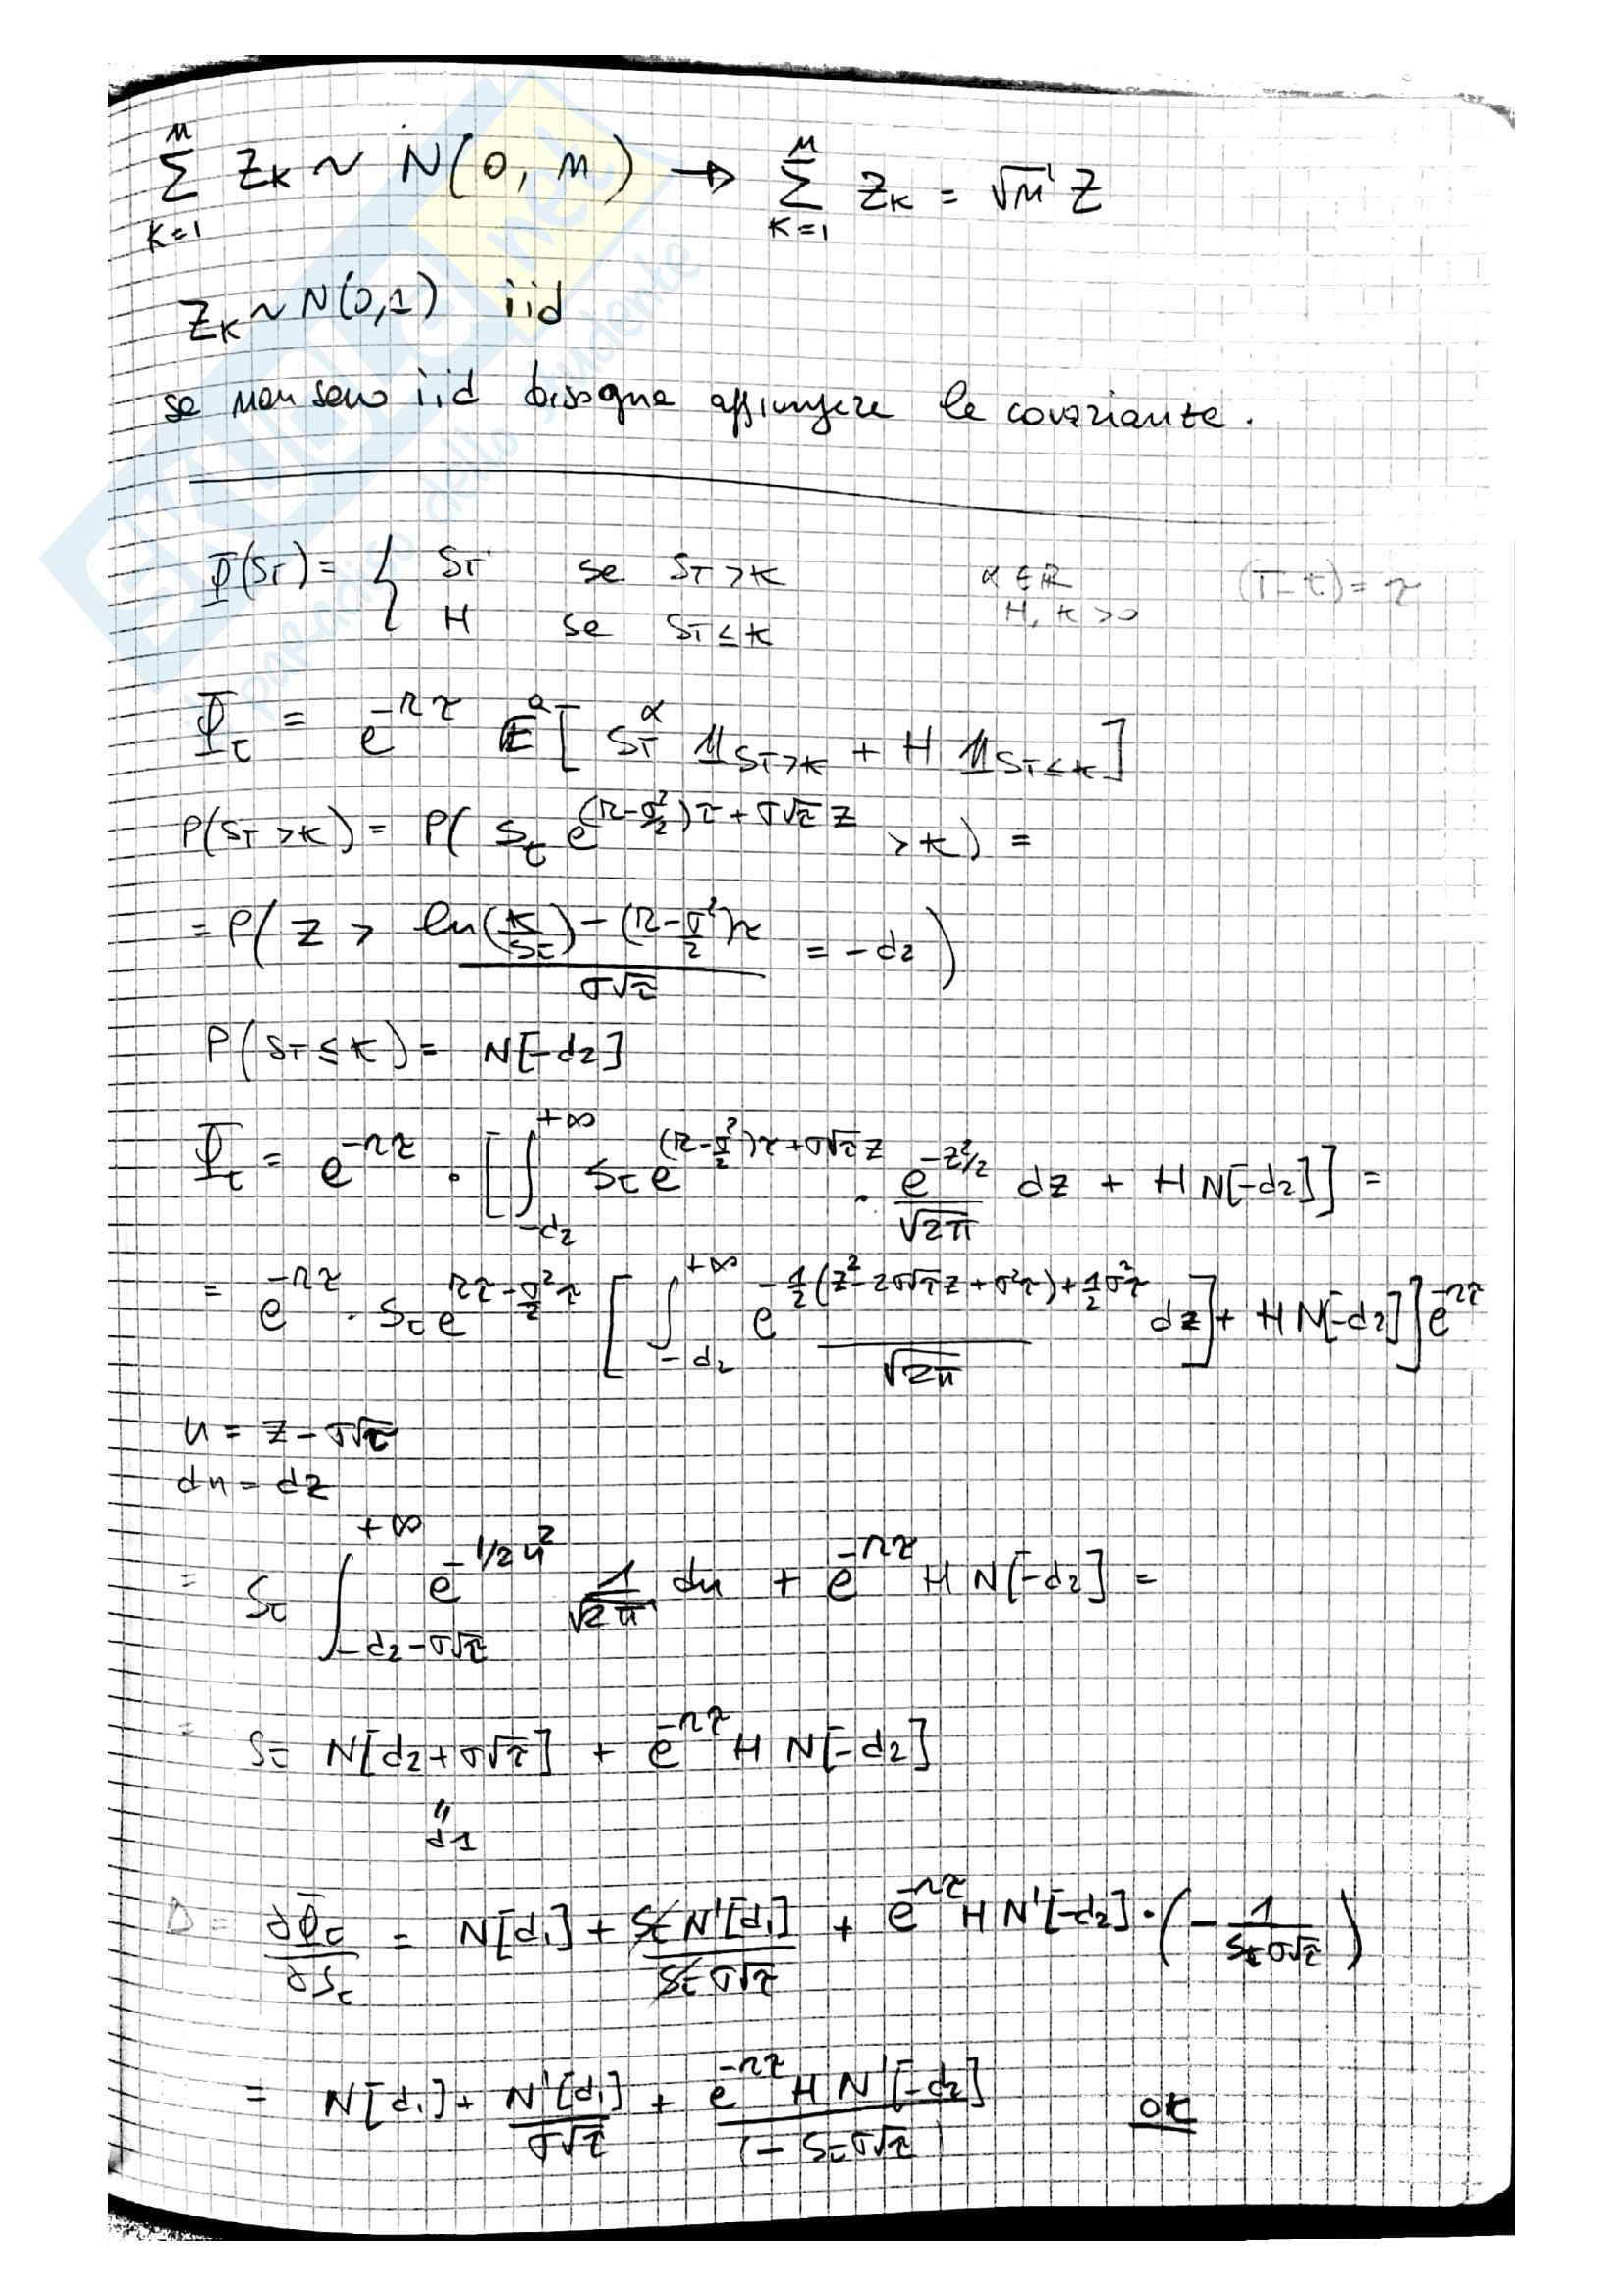 n
∑ Zk ~ N(0, n) → ∑ Zk = √n Z
k=1
Zk ~ N(0,1) iid
se non sono iid bisogna aggiungere le covarianze.
Φ(ST) = { ST se ST > K α ∈ ℝ (T-t) = τ
H se ST ≤ K H, K > 0
Φt = e^{-rτ} E^Q [ ST^α 𝟙_{ST>K} + H 𝟙_{ST≤K} ]
P(ST > K) = P( St e^{(r-σ²/2)τ + σ√τ Z} > K) =
= P( Z > (ln(K/St) - (r-σ²/2)τ)/(σ√τ) = -d2 )
P(ST ≤ K) = N[-d2]
Φt = e^{-rτ} · [ ∫_{-d2}^{+∞} St e^{(r-σ²/2)τ+σ√τ z} · e^{-z²/2}/√2π dz + H N[-d2] ] =
= e^{-rτ} · St e^{rτ-σ²/2 τ} [ ∫_{-d2}^{+∞} e^{-1/2(z²-2σ√τ z+σ²τ)+1/2σ²τ}/√2π dz ] + H N[-d2] ] e^{-rτ}
u = z - σ√τ
du = dz
= St ∫_{-d2-σ√τ}^{+∞} e^{-1/2 u²} 1/√2π du + e^{-rτ} H N[-d2] =
= St N[d2+σ√τ] + e^{-rτ} H N[-d2]
"
d1
Δ = ∂Φt/∂St = N[d1] + St N'[d1]/(St σ√τ) + e^{-rτ} H N'[-d2] · (-1/(St σ√τ))
= N[d1] + N'[d1]/(σ√τ) + e^{-rτ} H N'[-d2]/(- St σ√τ) OK
SKUOLA.net
il paradiso dello studente